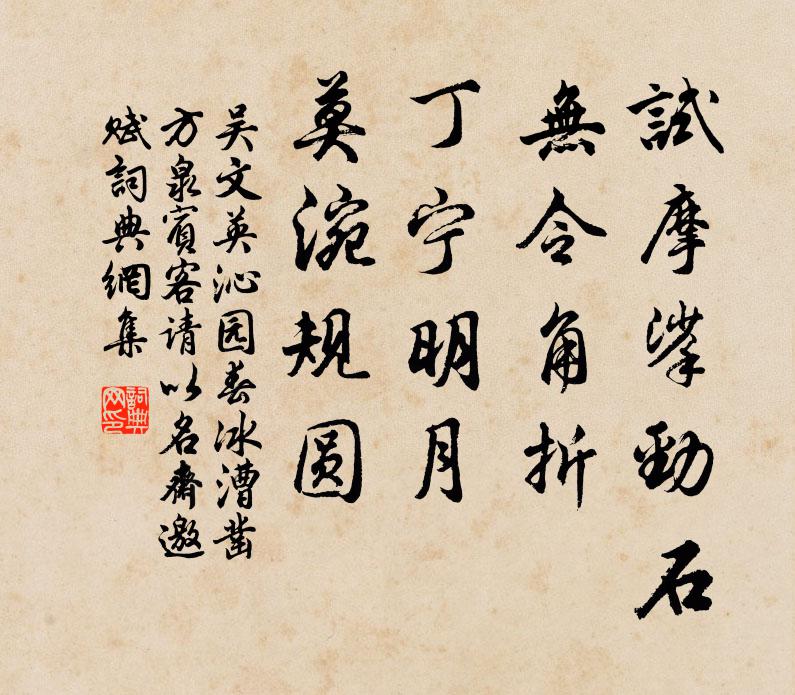 試摩挲勁石
無令角折
丁宁明月
莫涴规圆
吴文英沁园春冰漕凿
方泉宾客请以名斋邀
赋詞典網集
詞典網印